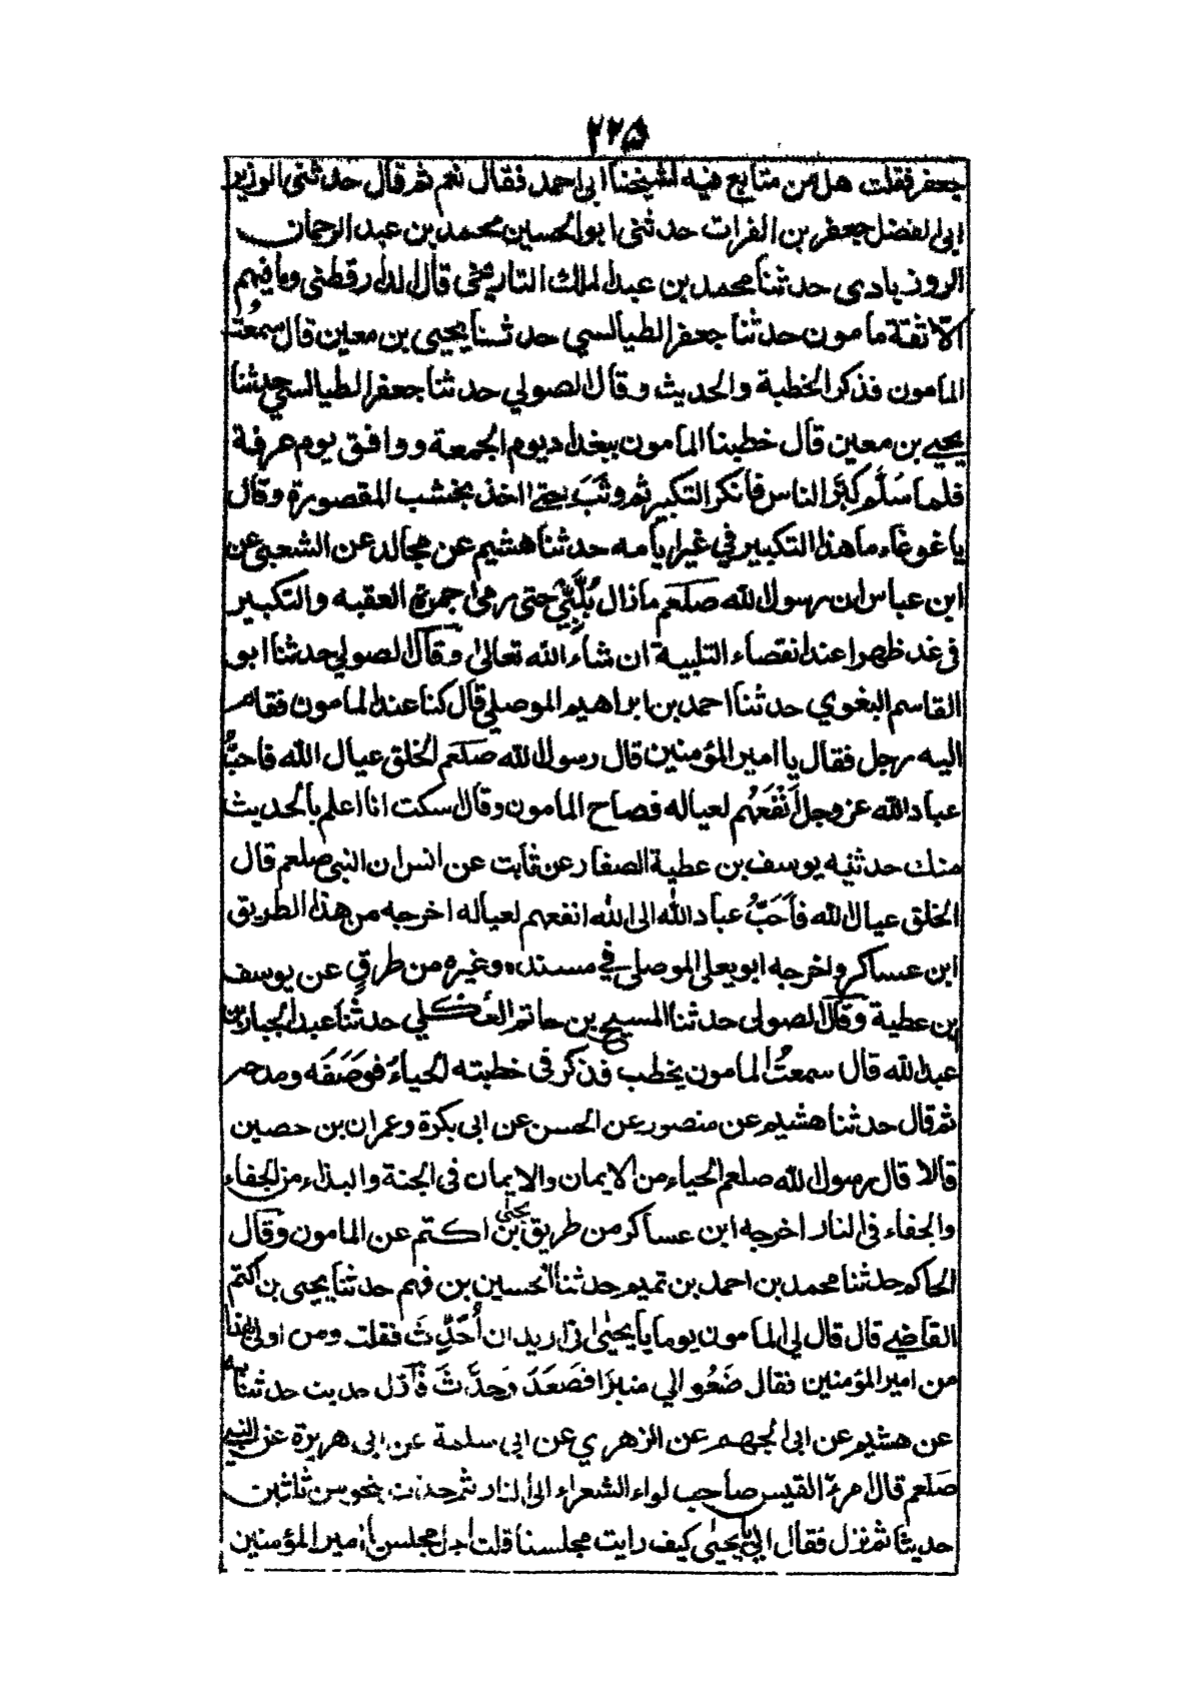 ۲۲۵
جعفر فقلت هل من متابع فيه لشيخنا ابى احمد فقال نعم ثم قال حدثنى الوزير
ابى الفضل جعفر بن الفرات حدثنى ابو الحسين محمد بن عبد الرحمان
الروذبادى حدثنا محمد بن عبد الملك التاريخى قال الدارقطنى وما فيهم
الّا ثقة مامون حدثنا جعفر الطيالسي حدثنا يحيى بن معين قال سمعتُ
المامون فذكر الخطبة والحديث وقال الصولي حدثنا جعفر الطيالسي حدثنا
يحيى بن معين قال خطبنا المامون ببغداد يوم الجمعة ووافق يوم عرفة
فلما سَلَّم كبَّر الناس فانكر التكبير ثم وثَبَ حتى اخذ بخشب المقصورة وقال
ياغوغاء ما هذا التكبير في غير ايامه حدثنا هشيم عن مجالد عن الشعبى عن
ابن عباس ان رسول الله صلعم ما زال يُلَبِّيْ حتى رمى جمرة العقبه والتكبير
فى غد ظهرا عند انقضاء التلبية ان شاء الله تعالى وقال الصولي حدثنا ابو
القاسم البغوي حدثنا احمد بن ابراهيم الموصلي قال كنا عند المامون فقام
اليه رجل فقال يا امير المؤمنين قال رسول الله صلعم الخلق عيال الله فاحبُّ
عباد الله عز وجل اَنْفَعُهم لعياله فصاح المامون وقال اسكت انا اعلم بالحديث
منك حدثنيه يوسف بن عطية الصفار عن ثابت عن انس ان النبى صلعم قال
الخلق عيال الله فاَحَبُّ عباد الله الى الله انفعهم لعياله اخرجه من هذا الطريق
ابن عساكر واخرجه ابو يعلى الموصلي في مسنده وغيره من طرقٍ عن يوسف
بن عطية وقال الصولى حدثنا المسيح بن حاتم العُكلي حدثنا عبد الجبار بن
عبد الله قال سمعتُ المامون يخطب فذكر فى خطبته الحياءَ فوَصَفَه ومدحه
ثم قال حدثنا هشيم عن منصور عن الحسن عن ابى بكرة وعمران بن حصين
قالا قال رسول الله صلعم الحياء من الايمان والايمان فى الجنة والبذاء من الجفاء
والجفاء فى النار اخرجه ابن عساكر من طريق يحيى بن اكتم عن المامون وقال
الحاكم حدثنا محمد بن احمد بن تميم حدثنا الحسين بن فهم حدثنا يحيى بن اكتم
القاضى قال قال لي المامون يوما يا يحيىٰ انى اريد ان اُحَدِّثَ فقلت ومن اولى بهذا
من امير المؤمنين فقال ضَعُوا لي منبرًا فصَعَدَ وحدَّثَ فاَوّل حديث حدثنا به
عن هشيم عن ابى الجهم عن الزهري عن ابى سلمة عن ابى هريرة عن النبى
صلعم قال امرءُ القيس صاحب لواء الشعراء الى النار ثم حدث بنحو من ثلثين
حديثا ثم نزل فقال لي يا يحيىٰ كيف رايت مجلسنا قلت اجل مجلس يا امير المؤمنين